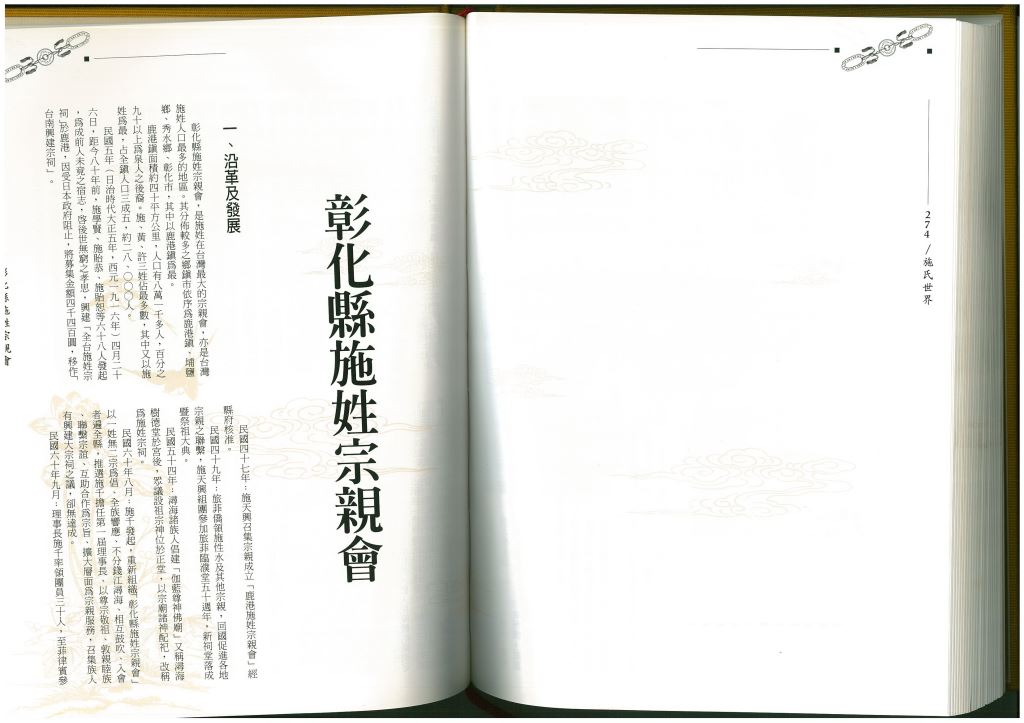 274／施氏世界
彰化縣施姓宗親會
一、沿革及發展
彰化縣施姓宗親會，是施姓在台灣最大的宗親會，亦是台灣
施姓人口最多的地區。其分佈較多之鄉鎮市依序為鹿港鎮、埔鹽
鄉、秀水鄉、彰化市，其中以鹿港鎮為最。
鹿港鎮面積約四十平方公里，人口有八萬一千多人，百分之
九十以上為泉人之後裔。施、黃、許三姓佔最多數，其中又以施
姓為最，占全鎮人口三成五，約二八、○○○人。
民國五年（日治時代大正五年，西元一九一六年）四月二十
六日，距今八十年前，施學賢、施貽恭、施貽恕等六十八人發起
，為成前人未竟之宿志，啓後世無窮之孝思，興建「全台施姓宗
祠」於鹿港，因受日本政府阻止，將募集金額四千四百圓，移作「
台南興建宗祠」。
民國四十七年：施天興召集宗親成立「鹿港施姓宗親會」經
縣府核准。
民國四十九年：旅菲僑領施性水及其他宗親，回國促進各地
宗親之聯繫，施天興組團參加旅菲臨濮堂五十週年，新祠堂落成
暨祭祖大典。
民國五十四年：潯海諸族人倡建「伽藍尊神佛廟」又稱潯海
樹德堂於宮後，眾議設祖宗神位於正堂，以宗廟諸神配祀，改稱
為施姓宗祠。
民國六十年八月：施千發起，重新組織「彰化縣施姓宗親會」
以一姓無二宗為倡、全族響應、不分錢江潯海、相互鼓吹、入會
者遍全縣，推選施千擔任第一屆理事長、以尊宗敬祖、敦親睦族
、聯繫宗誼、互助合作為宗旨、擴大層面為宗親服務，召集族人
有興建大宗祠之議，卻無達成。
民國六十年九月：理事長施千率領團員三十人，至菲律賓參
彰化縣施姓宗親會